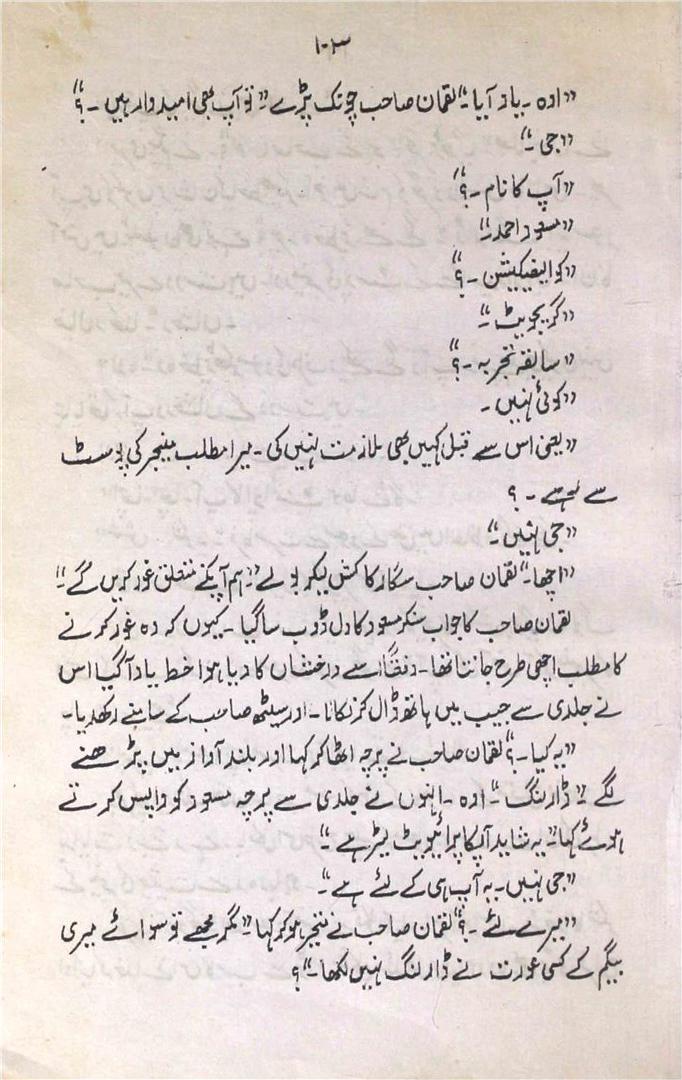 ۱۰۳
”اوہ ۔ یاد آیا۔“ لقمان صاحب چونک پڑے ”تو آپ بھی امیدوار ہیں ۔؟“
”جی ۔“
”آپ کا نام ۔؟“
”مسعود احمد“
”کوالیفیکیشن ۔؟“
”گریجویٹ ۔“
”سابقہ تجربہ ۔؟“
”کوئی نہیں ۔
”یعنی اس سے قبل کہیں بھی ملازمت نہیں کی ۔ میرا مطلب مینجر کی پوسٹ
سے ہے ۔ ؟
”جی نہیں ۔“
”اچھا۔“ لقمان صاحب سگار کا کش لیکر بولے ”ہم آپکے متعلق غور کریں گے ۔“
لقمان صاحب کا جواب سنکر مسعود کا دل ڈوب سا گیا ۔ کیوں کہ وہ غور کرنے
کا مطلب اچھی طرح جانتا تھا۔ دفعتاً اسے درخشاں کا دیا ہوا خط یاد آگیا اس
نے جلدی سے جیب میں ہاتھ ڈال کر نکالا ۔ اور سیٹھ صاحب کے سامنے رکھدیا ۔
”یہ کیا ۔؟“ لقمان صاحب نے پرچہ اٹھا کر کہا اور بلند آواز میں پڑھنے
لگے ”ڈارلنگ“ ۔ اوہ ۔ انہوں نے جلدی سے پرچہ مسعود کو واپس کرتے
ہوئے کہا ”یہ شاید آپکا پرائیویٹ لیٹر ہے ۔“
”جی نہیں ۔ یہ آپ ہی کے لئے ہے ۔“
”میرے لئے ۔؟“ لقمان صاحب نے متحیر ہو کر کہا ”مگر مجھے تو سوائے میری
بیگم کے کسی عورت نے ڈارلنگ نہیں لکھا ۔“؟